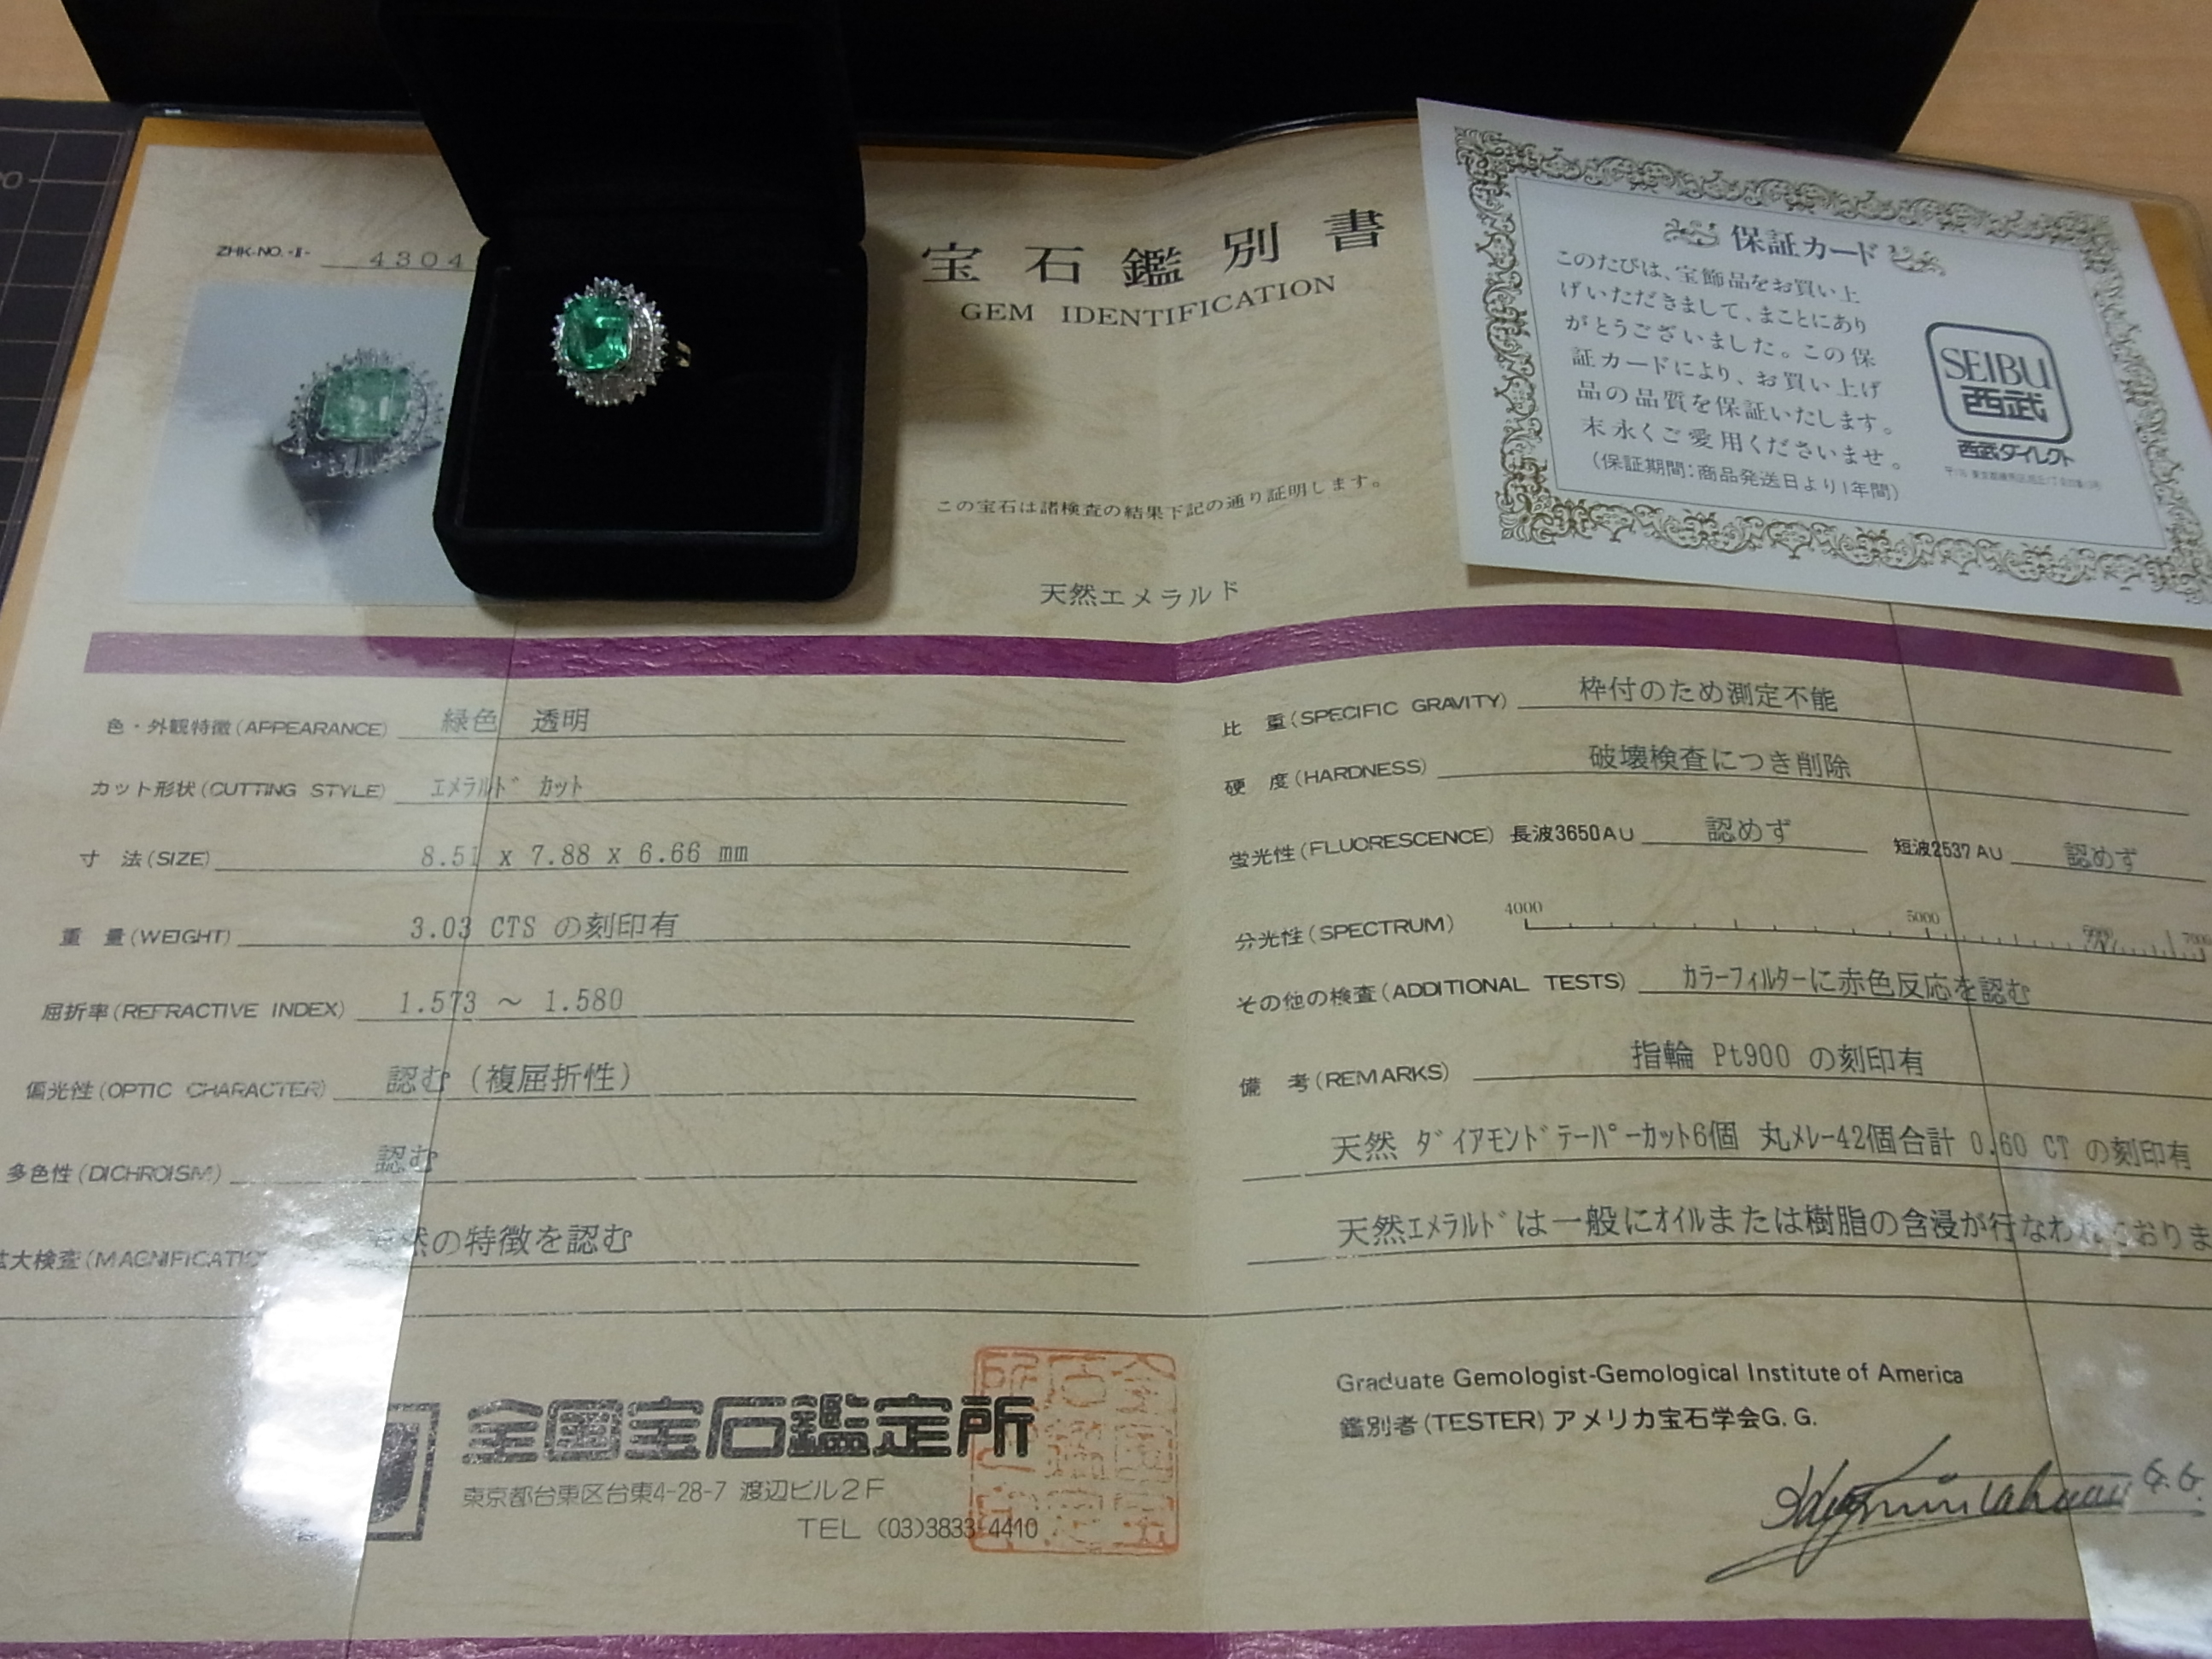 ZHK-NO.-II- 4304
宝石鑑別書
GEM IDENTIFICATION
この宝石は諸検査の結果下記の通り証明します。
天然エメラルド
保証カード
このたびは、宝飾品をお買い上
げいただきまして、まことにあり
がとうございました。この保
証カードにより、お買い上げ
品の品質を保証いたします。
末永くご愛用くださいませ。
(保証期間:商品発送日より1年間)
SEIBU
西武
西武ダイレクト
色・外観特徴(APPEARANCE) 緑色 透明
カット形状(CUTTING STYLE) エメラルド カット
寸 法(SIZE) 8.51 x 7.88 x 6.66 mm
重 量(WEIGHT) 3.03 CTS の刻印有
屈折率(REFRACTIVE INDEX) 1.573 ~ 1.580
偏光性(OPTIC CHARACTER) 認む (複屈折性)
多色性(DICHROISM) 認む
拡大検査(MAGNIFICATIO 天然の特徴を認む
比 重(SPECIFIC GRAVITY) 枠付のため測定不能
硬 度(HARDNESS) 破壊検査につき削除
蛍光性(FLUORESCENCE) 長波3650AU 認めず 短波2537AU 認めず
分光性(SPECTRUM) 4000 5000 7000
その他の検査(ADDITIONAL TESTS) カラーフィルターに赤色反応を認む
備 考(REMARKS) 指輪 Pt900 の刻印有
天然 ダイアモンドテーパーカット6個 丸メレー42個合計 0.60 CT の刻印有
天然エメラルドは一般にオイルまたは樹脂の含浸が行なわれておりま
全国宝石鑑定所
東京都台東区台東4-28-7 渡辺ビル2F
TEL (03)3833-4410
Graduate Gemologist-Gemological Institute of America
鑑別者(TESTER) アメリカ宝石学会G.G.
G.G.